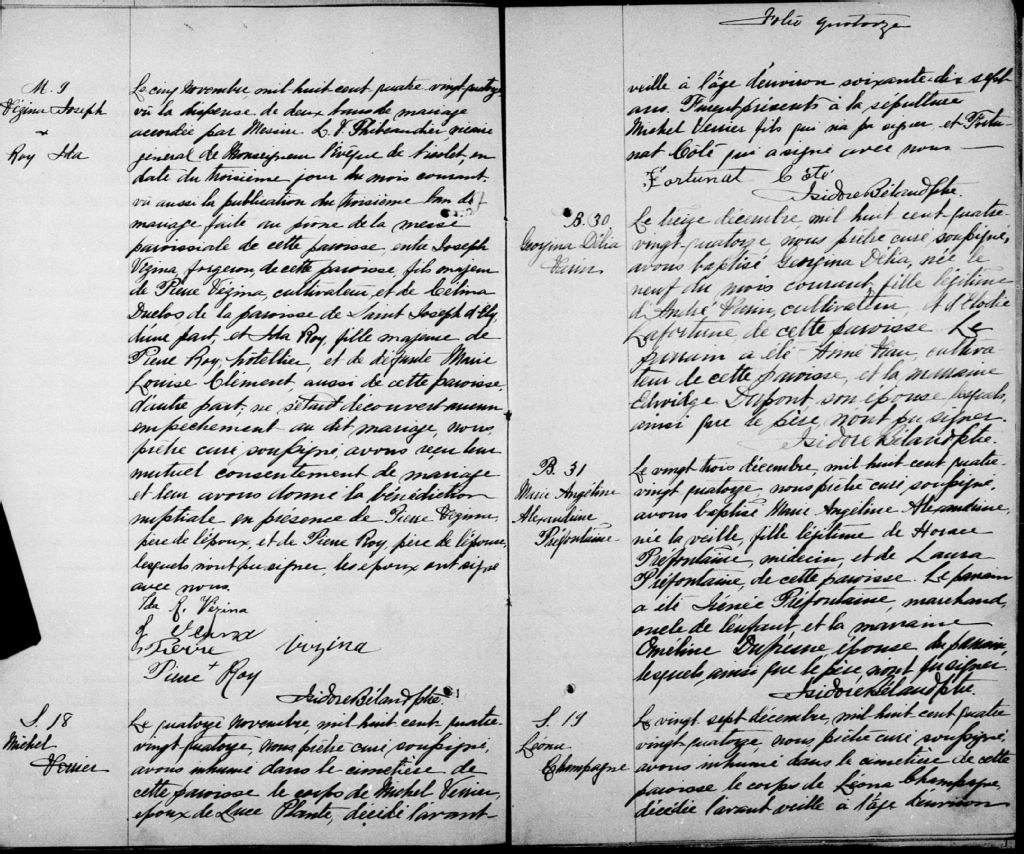 M. 9
Vézina Joseph
&
Roy Ida
Le cinq novembre, mil huit cent quatre vingt-quatorze
vû la dispense de deux bans de mariage
accordée par Messire L. V. Thibaudier vicaire
général de Monseigneur l'évêque de Nicolet, en
date du troisième jour du mois courant
vû aussi la publication du troisième ban de
mariage faite au prône de la messe
paroissiale de cette paroisse, entre Joseph
Vézina, forgeron, de cette paroisse, fils majeur
de Pierre Vézina, cultivateur, et de Célina
Duclos de la paroisse de Saint Joseph d'Ely
d'une part, et Ida Roy, fille majeure de
Pierre Roy, hôtellier, et de défunte Marie
Louise Clément, aussi de cette paroisse,
d'autre part; ne s'étant découvert aucun
empêchement au dit mariage, nous,
prêtre curé soussigné, avons reçu leur
mutuel consentement de mariage
et leur avons donné la bénédiction
nuptiale en présence de Pierre Vézina,
père de l'époux, et de Pierre Roy, père de l'épouse,
lesquels n'ont pu signer, les époux ont signé
avec nous.
Ida Vézina
Pierre Vezina
Pierre + Roy
Isidore Béland Ptre.
S. 18
Michel
Verrier
Le quatorze novembre, mil huit cent quatre-
vingt quatorze, nous prêtre curé, soussigné,
avons inhumé dans le cimetière de
cette paroisse le corps de Michel Verrier,
époux de Luce Plante, décédé l'avant-
Folio quatorze
veille à l'âge d'environ soixante-dix sept
ans. Furent présents à la sépulture
Michel Verrier fils qui n'a pu signer, et Fortu-
nat Côté qui a signé avec nous —
Fortunat Côté
Isidore Béland Ptre
B. 30
Georgina Délia
Le treize décembre, mil huit cent quatre-
vingt-quatorze, nous prêtre curé soussigné,
avons baptisé Georgina Délia, née le
neuf du mois courant, fille légitime
d'André cultivateur, et d'Elodie
Laforture, de cette paroisse. Le
parrain a été cultiva-
teur de cette paroisse, et la marraine
Edwidge Dupont son épouse lesquels,
ainsi que le père, n'ont pu signer.
Isidore Béland Ptre.
B. 31
Marie Angéline
Alexandrine
Préfontaine
Le vingt trois décembre, mil huit cent quatre-
vingt quatorze, nous prêtre curé, soussigné,
avons baptisé Marie Angéline Alexandrine,
née la veille, fille légitime de Horace
Préfontaine, médecin, et de Laura
Préfontaine, de cette paroisse. Le parrain
a été Irénée Préfontaine, marchand,
oncle de l'enfant, et la marraine
Eméline Dufresne épouse du parrain,
lesquels, ainsi que le père, ont pu signer.
Isidore Béland Ptre.
S. 19
Léona
Champagne
Le vingt sept décembre, mil huit cent quatre
vingt-quatorze, nous prêtre curé soussigné,
avons inhumé dans le cimetière de cette
paroisse le corps de Léona Champagne
décédée l'avant veille à l'âge d'environ